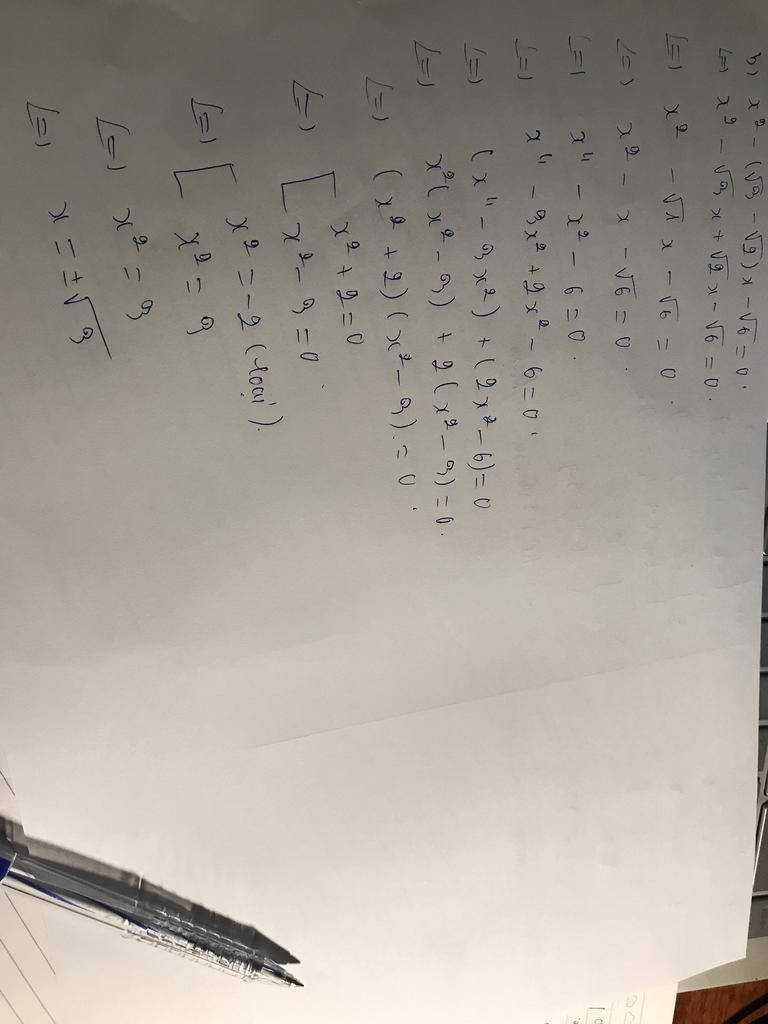 b) x² - (√3 - √2)x - √6 = 0.
<=> x² - √3 x + √2 x - √6 = 0.
<=> x² - √1 x - √6 = 0.
<=> x² - x - √6 = 0.
<=> x⁴ - x² - 6 = 0.
<=> x⁴ - 3x² + 2x² - 6 = 0.
<=> (x⁴ - 3x²) + (2x² - 6) = 0
<=> x²(x² - 3) + 2(x² - 3) = 0.
<=> (x² + 2)(x² - 3) = 0.
<=> [ x² + 2 = 0
x² - 3 = 0.
<=> [ x² = -2 (loại).
x² = 3
<=> x² = 3
<=> x = ±√3